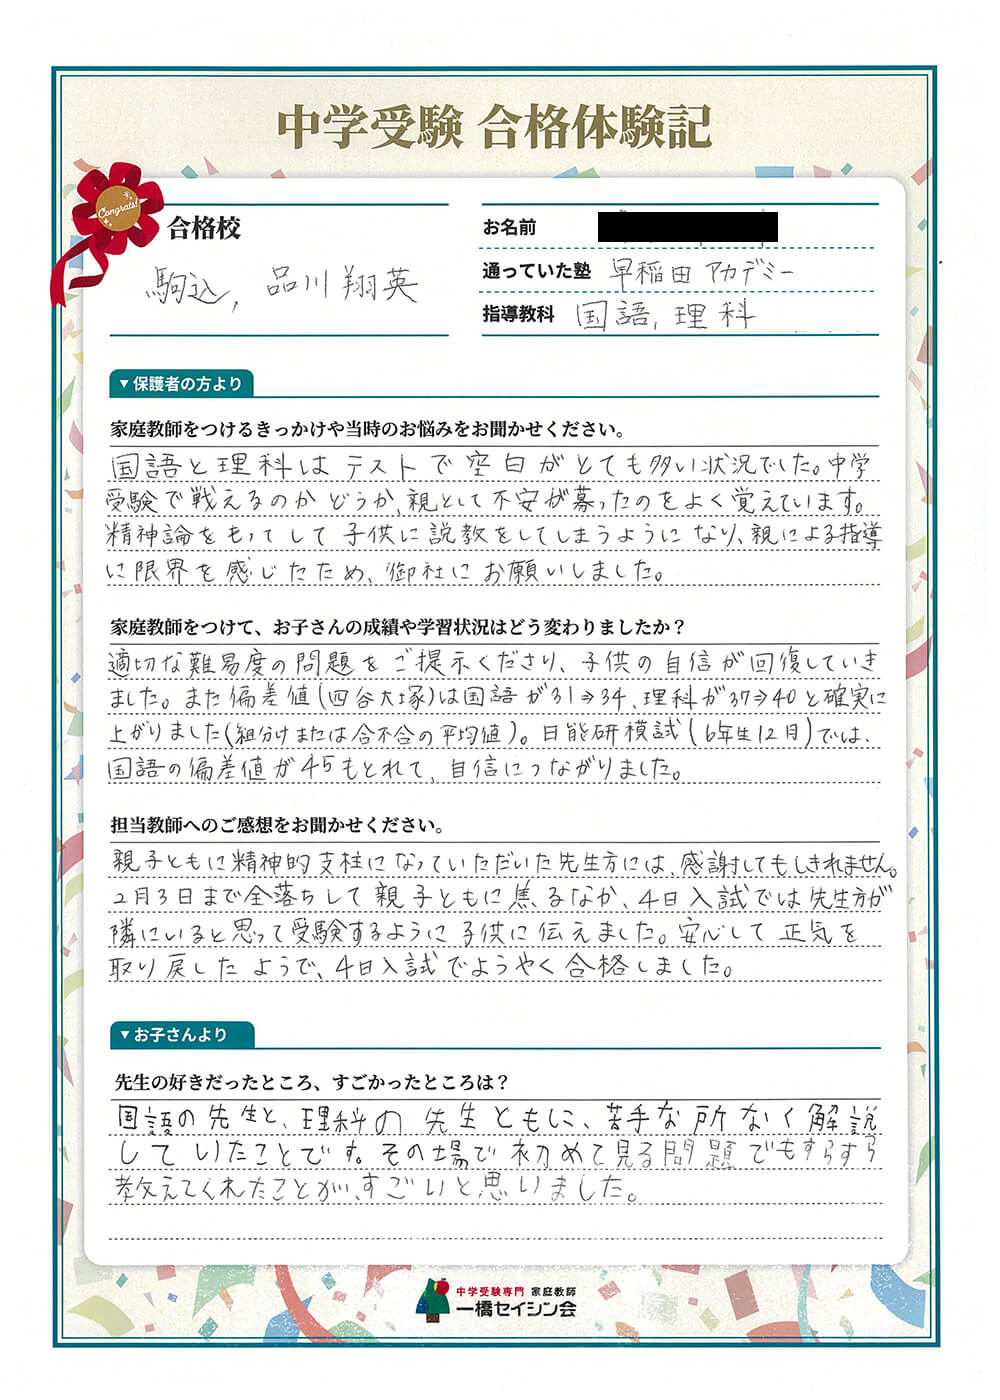 中学受験 合格体験記
Congrats!
合格校
駒込, 品川翔英
お名前
通っていた塾 早稲田アカデミー
指導教科 国語, 理科
▼保護者の方より
家庭教師をつけるきっかけや当時のお悩みをお聞かせください。
国語と理科はテストで空白がとても多い状況でした。中学
受験で戦えるのかどうか、親として不安が募ったのをよく覚えています。
精神論をもってして子供に説教をしてしまうようになり、親による指導
に限界を感じたため、御社にお願いしました。
家庭教師をつけて、お子さんの成績や学習状況はどう変わりましたか？
適切な難易度の問題をご提示くださり、子供の自信が回復していき
ました。また偏差値(四谷大塚)は国語が31⇒34、理科が37⇒40と確実に
上がりました(組分けまたは合不合の平均値)。日能研模試(6年生12月)では、
国語の偏差値が45もとれて、自信につながりました。
担当教師へのご感想をお聞かせください。
親子ともに精神的支柱になっていただいた先生方には、感謝してもしきれません。
2月3日まで全落ちして親子ともに焦るなか、4日入試では先生方が
隣にいると思って受験するように子供に伝えました。安心して正気を
取り戻したようで、4日入試でようやく合格しました。
▼お子さんより
先生の好きだったところ、すごかったところは？
国語の先生と、理科の先生ともに、苦手な所なく解説
していたことです。その場で初めて見る問題でもすらすら
教えてくれたことが、すごいと思いました。
中学受験専門 家庭教師
一橋セイシン会